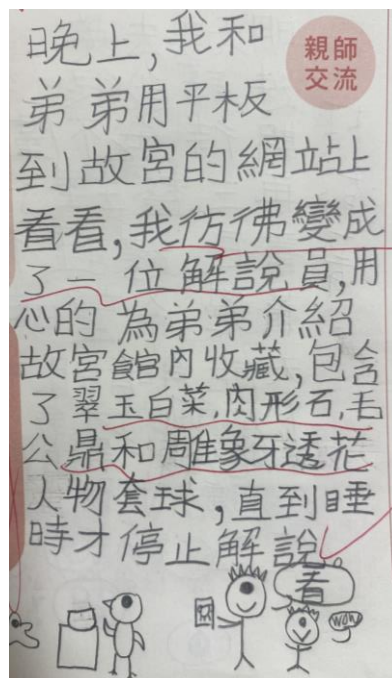 親師
交流
晚上,我和
弟弟用平板
到故宮的網站上
看看,我彷彿變成
了一位解說員,用
心的為弟弟介紹
故宮館內收藏,包含
了翠玉白菜,肉形石,毛
公鼎和雕象牙透花
人物套球,直到睡
時才停止解說
看
wow